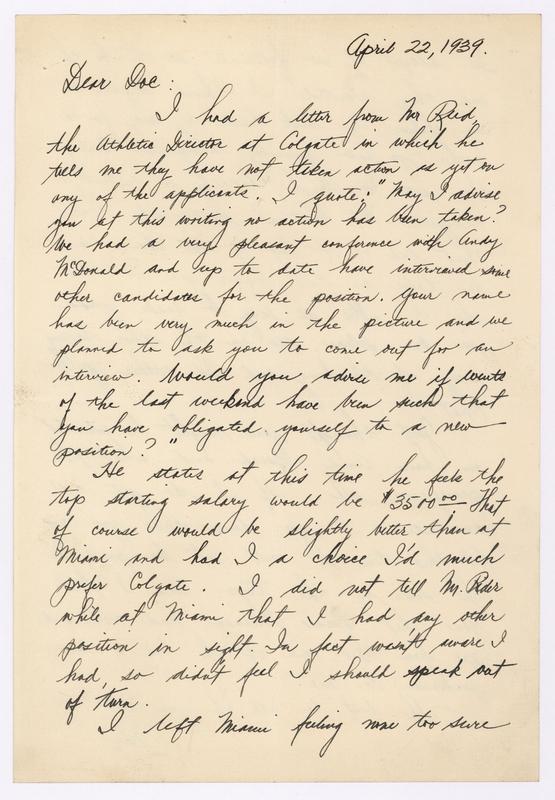 April 22, 1939.
Dear Doc:
I had a letter from Mr Reid,
the Athletic Director at Colgate in which he
tells me they have not taken action as yet on
any of the applicants. I quote: "May I advise
you at this writing no action has been taken?
We had a very pleasant conference with Andy
McDonald and up to date have interviewed some
other candidates for the position. Your name
has been very much in the picture and we
planned to ask you to come out for an
interview. Would you advise me if events
of the last weekend have been such that
you have obligated yourself to a new
position?"
He states at this time he feels the
top starting salary would be $3500.00 That
of course would be slightly better than at
Miami and had I a choice I'd much
prefer Colgate. I did not tell Mr.
while at Miami that I had any other
position in sight. In fact wasn't aware I
had, so didn't feel I should speak out
of turn.
I left Miami feeling none too sure